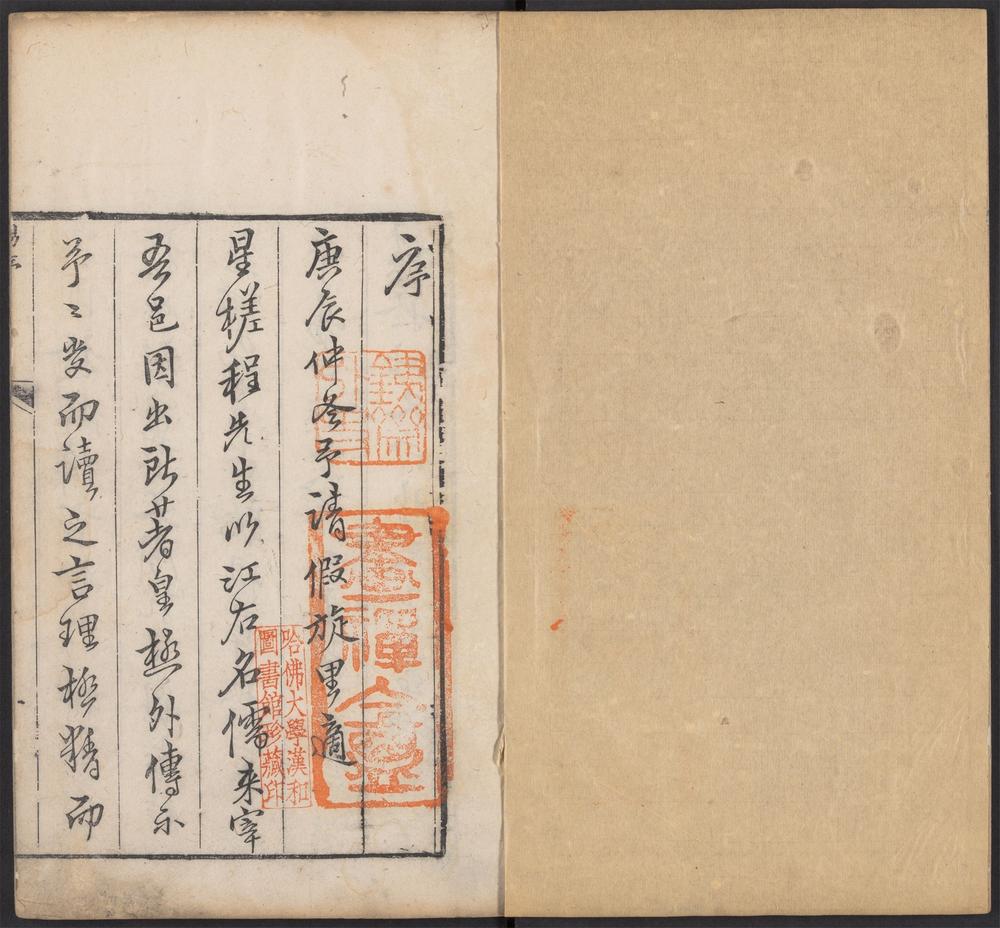 序
庚辰仲冬予請假旋里適
星槎程先生以江右名儒來宰
吾邑因出所著皇極外傳示
予〻受而讀之言理極精而
哈佛大學漢和
圖書館珍藏印